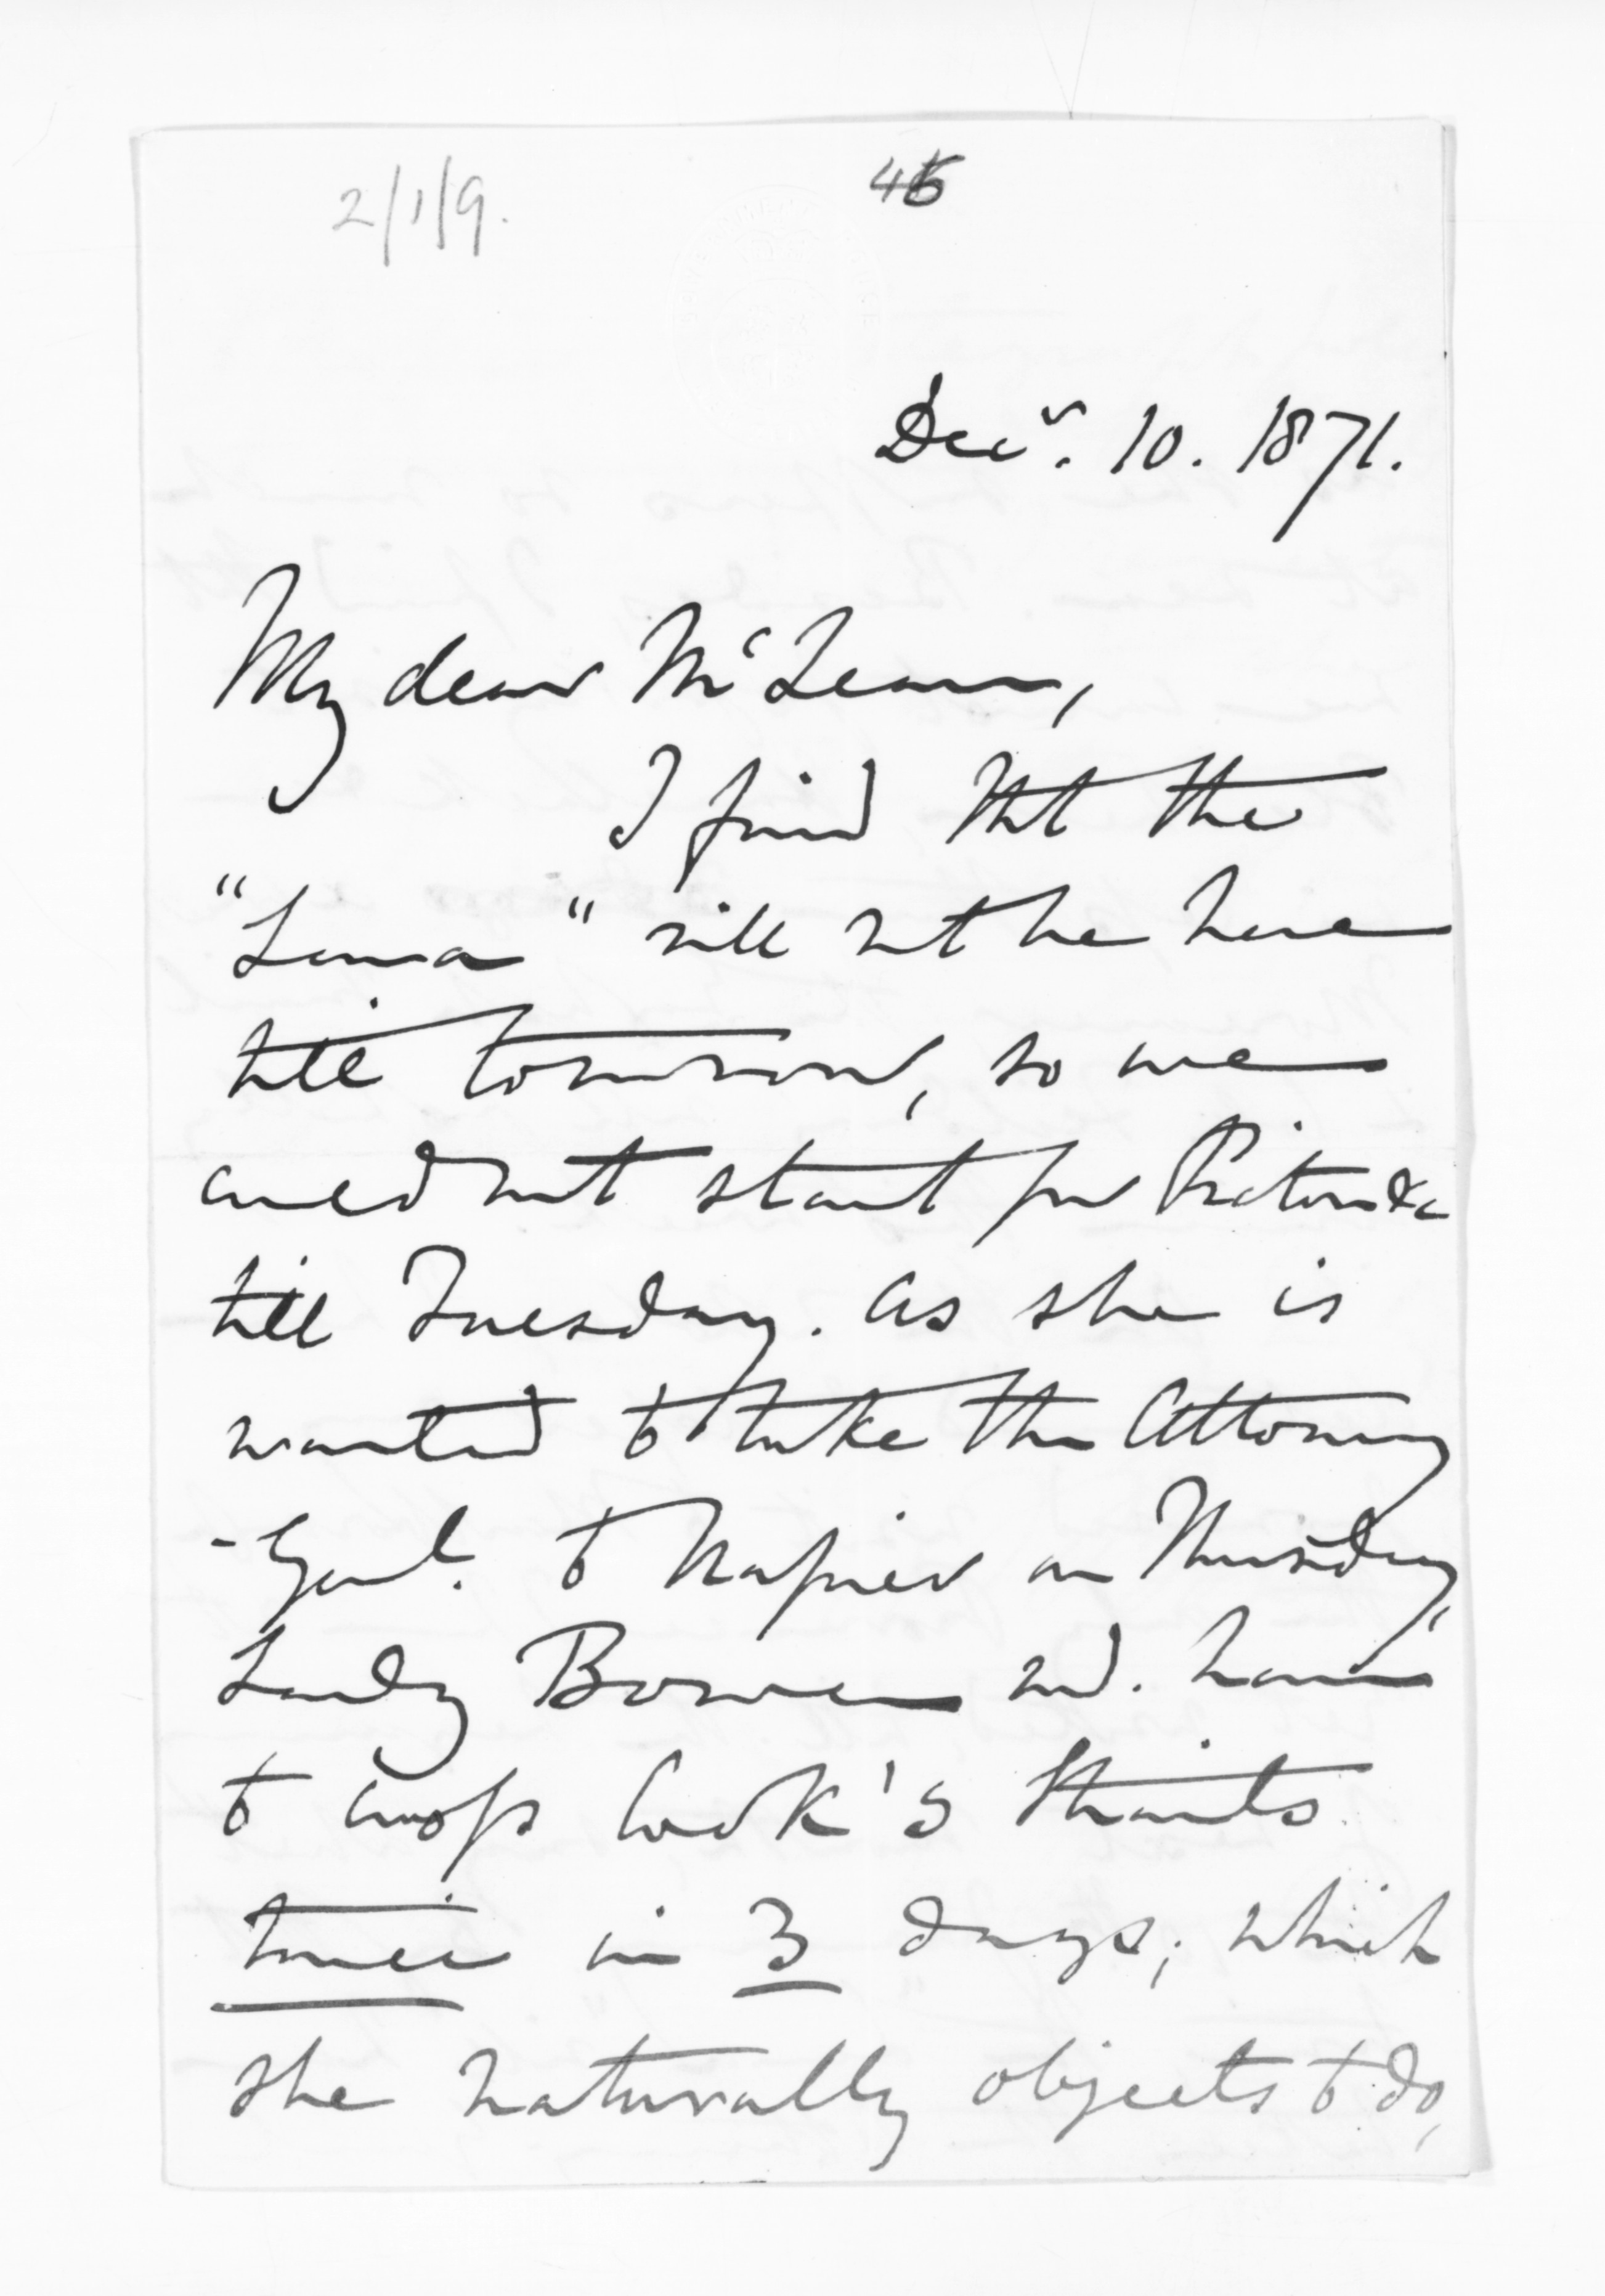 2/1/9.
45
Decr. 10. 1871.
My dear McLean,
I find tht the
"Luna" will not be here
till tomorrow, so we
need not start for Picton &c
till Tuesday. As she is
wanted to take the Attorney
-Genl. to Napier on Thursday,
Lady Bowen wd. have
to cross Cook's Straits
twice in 3 days, which
she naturally objects to do,